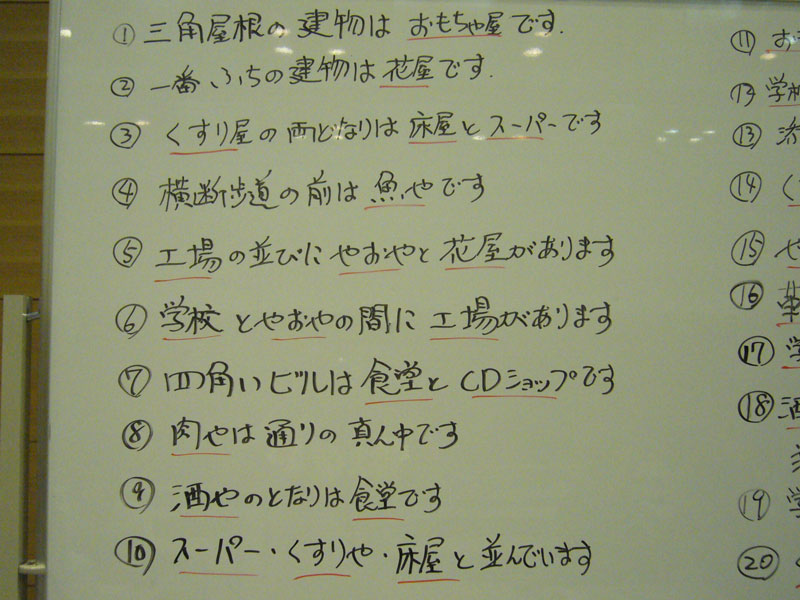 ① 三角屋根の建物はおもちゃ屋です.
② 一番ふちの建物は花屋です.
③ くすり屋の両どなりは床屋とスーパーです
④ 横断歩道の前は魚やです
⑤ 工場の並びにやおやと花屋があります
⑥ 学校とやおやの間に工場があります
⑦ 四角いビルは食堂とCDショップです
⑧ 肉やは通りの真ん中です
⑨ 酒やのとなりは食堂です
⑩ スーパー・くすりや・床屋と並んでいます
⑪ お
学校
⑬
⑭ く
⑮ や
⑯
⑰ 学
⑱ 酒
⑲ 学
⑳